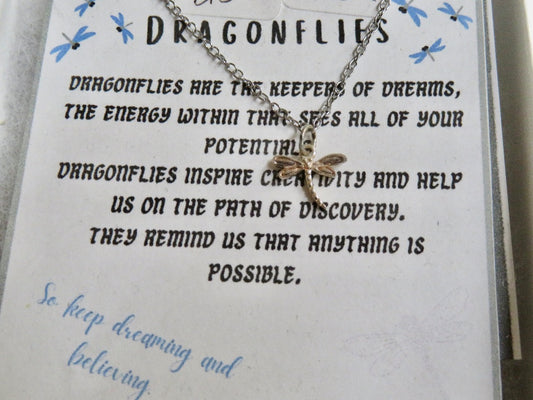 DRAGONFLIES
DRAGONFLIES ARE THE KEEPERS OF DREAMS,
THE ENERGY WITHIN THAT SEES ALL OF YOUR
POTENTIAL
DRAGONFLIES INSPIRE CREATIVITY AND HELP
US ON THE PATH OF DISCOVERY.
THEY REMIND US THAT ANYTHING IS
POSSIBLE.
So keep dreaming and
believing.